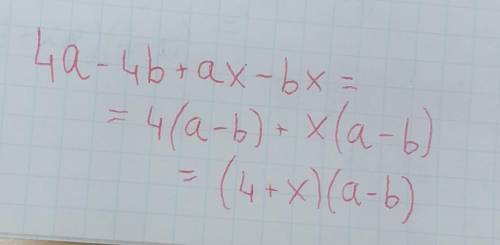 4a - 4b + ax - bx =
= 4(a-b) + x(a-b)
= (4+x)(a-b)